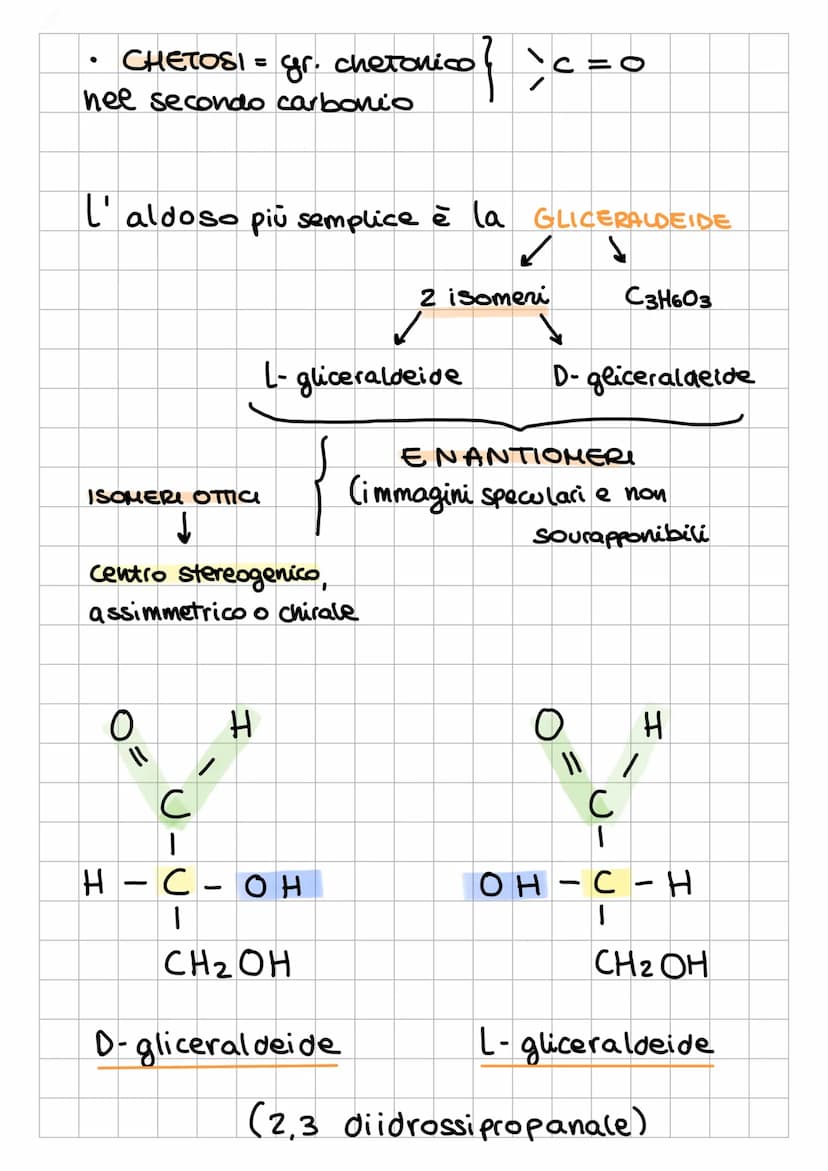 • CHETOSI = gr. chetonico } C = O
nel secondo carbonio
L' aldoso più semplice è la GLICERALDEIDE
2 isomeri C3H6O3
L- gliceraldeide D- gliceraldeide
ENANTIOMERI
ISOMERI OTTICI { (immagini speculari e non
sovrapponibili
centro stereogenico,
assimmetrico o chirale
O H O H
C C
H - C - OH OH - C - H
CH2OH CH2OH
D- gliceraldeide L- gliceraldeide
(2,3 diidrossipropanale)